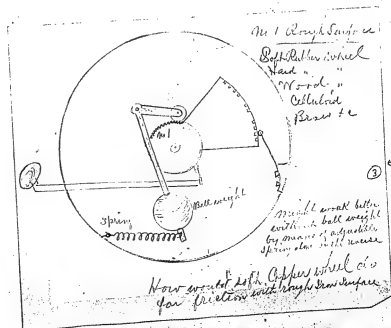 M 1 Rough Surface
Soft Rubber wheel
Hard " "
Wood " "
Celluloid
Brass +c
M1
3
Ball weight
Spring
Might work better
without ball weight
by means of adjustable
Spring also in the reverse
How would soft Copper wheel do
for friction with rough Iron Surface